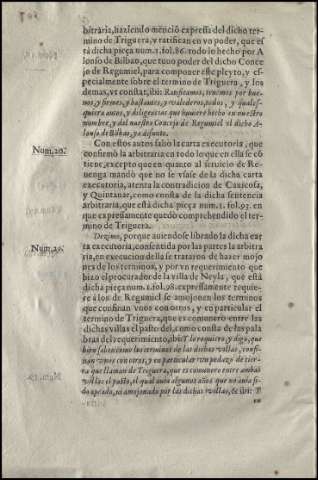 bitraria, haziendo mencio expressa del dicho ter-
mino de Triguera, y ratifican en vn poder, que es
tà dicha pieça num. 1. fol. 86. todo lo hecho por A
lonso de Bilbao, que tuuo poder del dicho Conce
jo de Regumiel, para componer este pleyto, y es-
pecialmente sobre el termino de Triguera, y los
demas, vt constat, ibi: Ratificamos, tenemos por bue-
nos, y firmes, y bastantes, y valederos, todos, y quales-
quiera autos, y diligencias que huuiere hecho en nuestro
nombre, y del nuestro Concejo de Regumiel el dicho A-
lonso de Bilbao, ya difunto.
Num. 20.
Con estos autos saliò la carta executoria, que
confirmò la arbitraria en todo lo que en ella se cõ
tiene, excepto que en quanto al sitio de Re-
uenga mandò que no se vsasse de la dicha carta
executoria, atenta la contradicion de Canicosa,
y Quintanar, como consta de la dicha sentencia
arbitraria, que està dicha pieça num. 1. fol. 93. en
que expresamente quedò comprehendido el ter-
mino de Triguera.
Num. 21.
Dezimo, porque auiendose librado la dicha car
ta executoria, consentida por las partes la arbitra
ria, en execucion della se trataron de hazer mojo
nes de los terminos, y por vn requerimiento que
hizo el procurador de la villa de Neyla, què està
dicha pieça num. 1. fol. 98. expressamente requie
re à los de Regumiel se amojonen los terminos
que confinan vnos con otros, y en particular el
termino de Triguera, que es comunero entre las
dichas villas el pasto del, como consta de las pala
bras del requerimiento, ibi: Y lo requiero, y digo, que
bien saben como los terminos de las dichas villas, confi-
nan vnos con otros, y en particular vn pedaço de tier-
ra que llaman de Triguera, que es comunero entre ambas
villas el pasto, el qual auia algunos años que no auia si-
do apeado, ni amojonado por las dichas villas, & ibi: Y